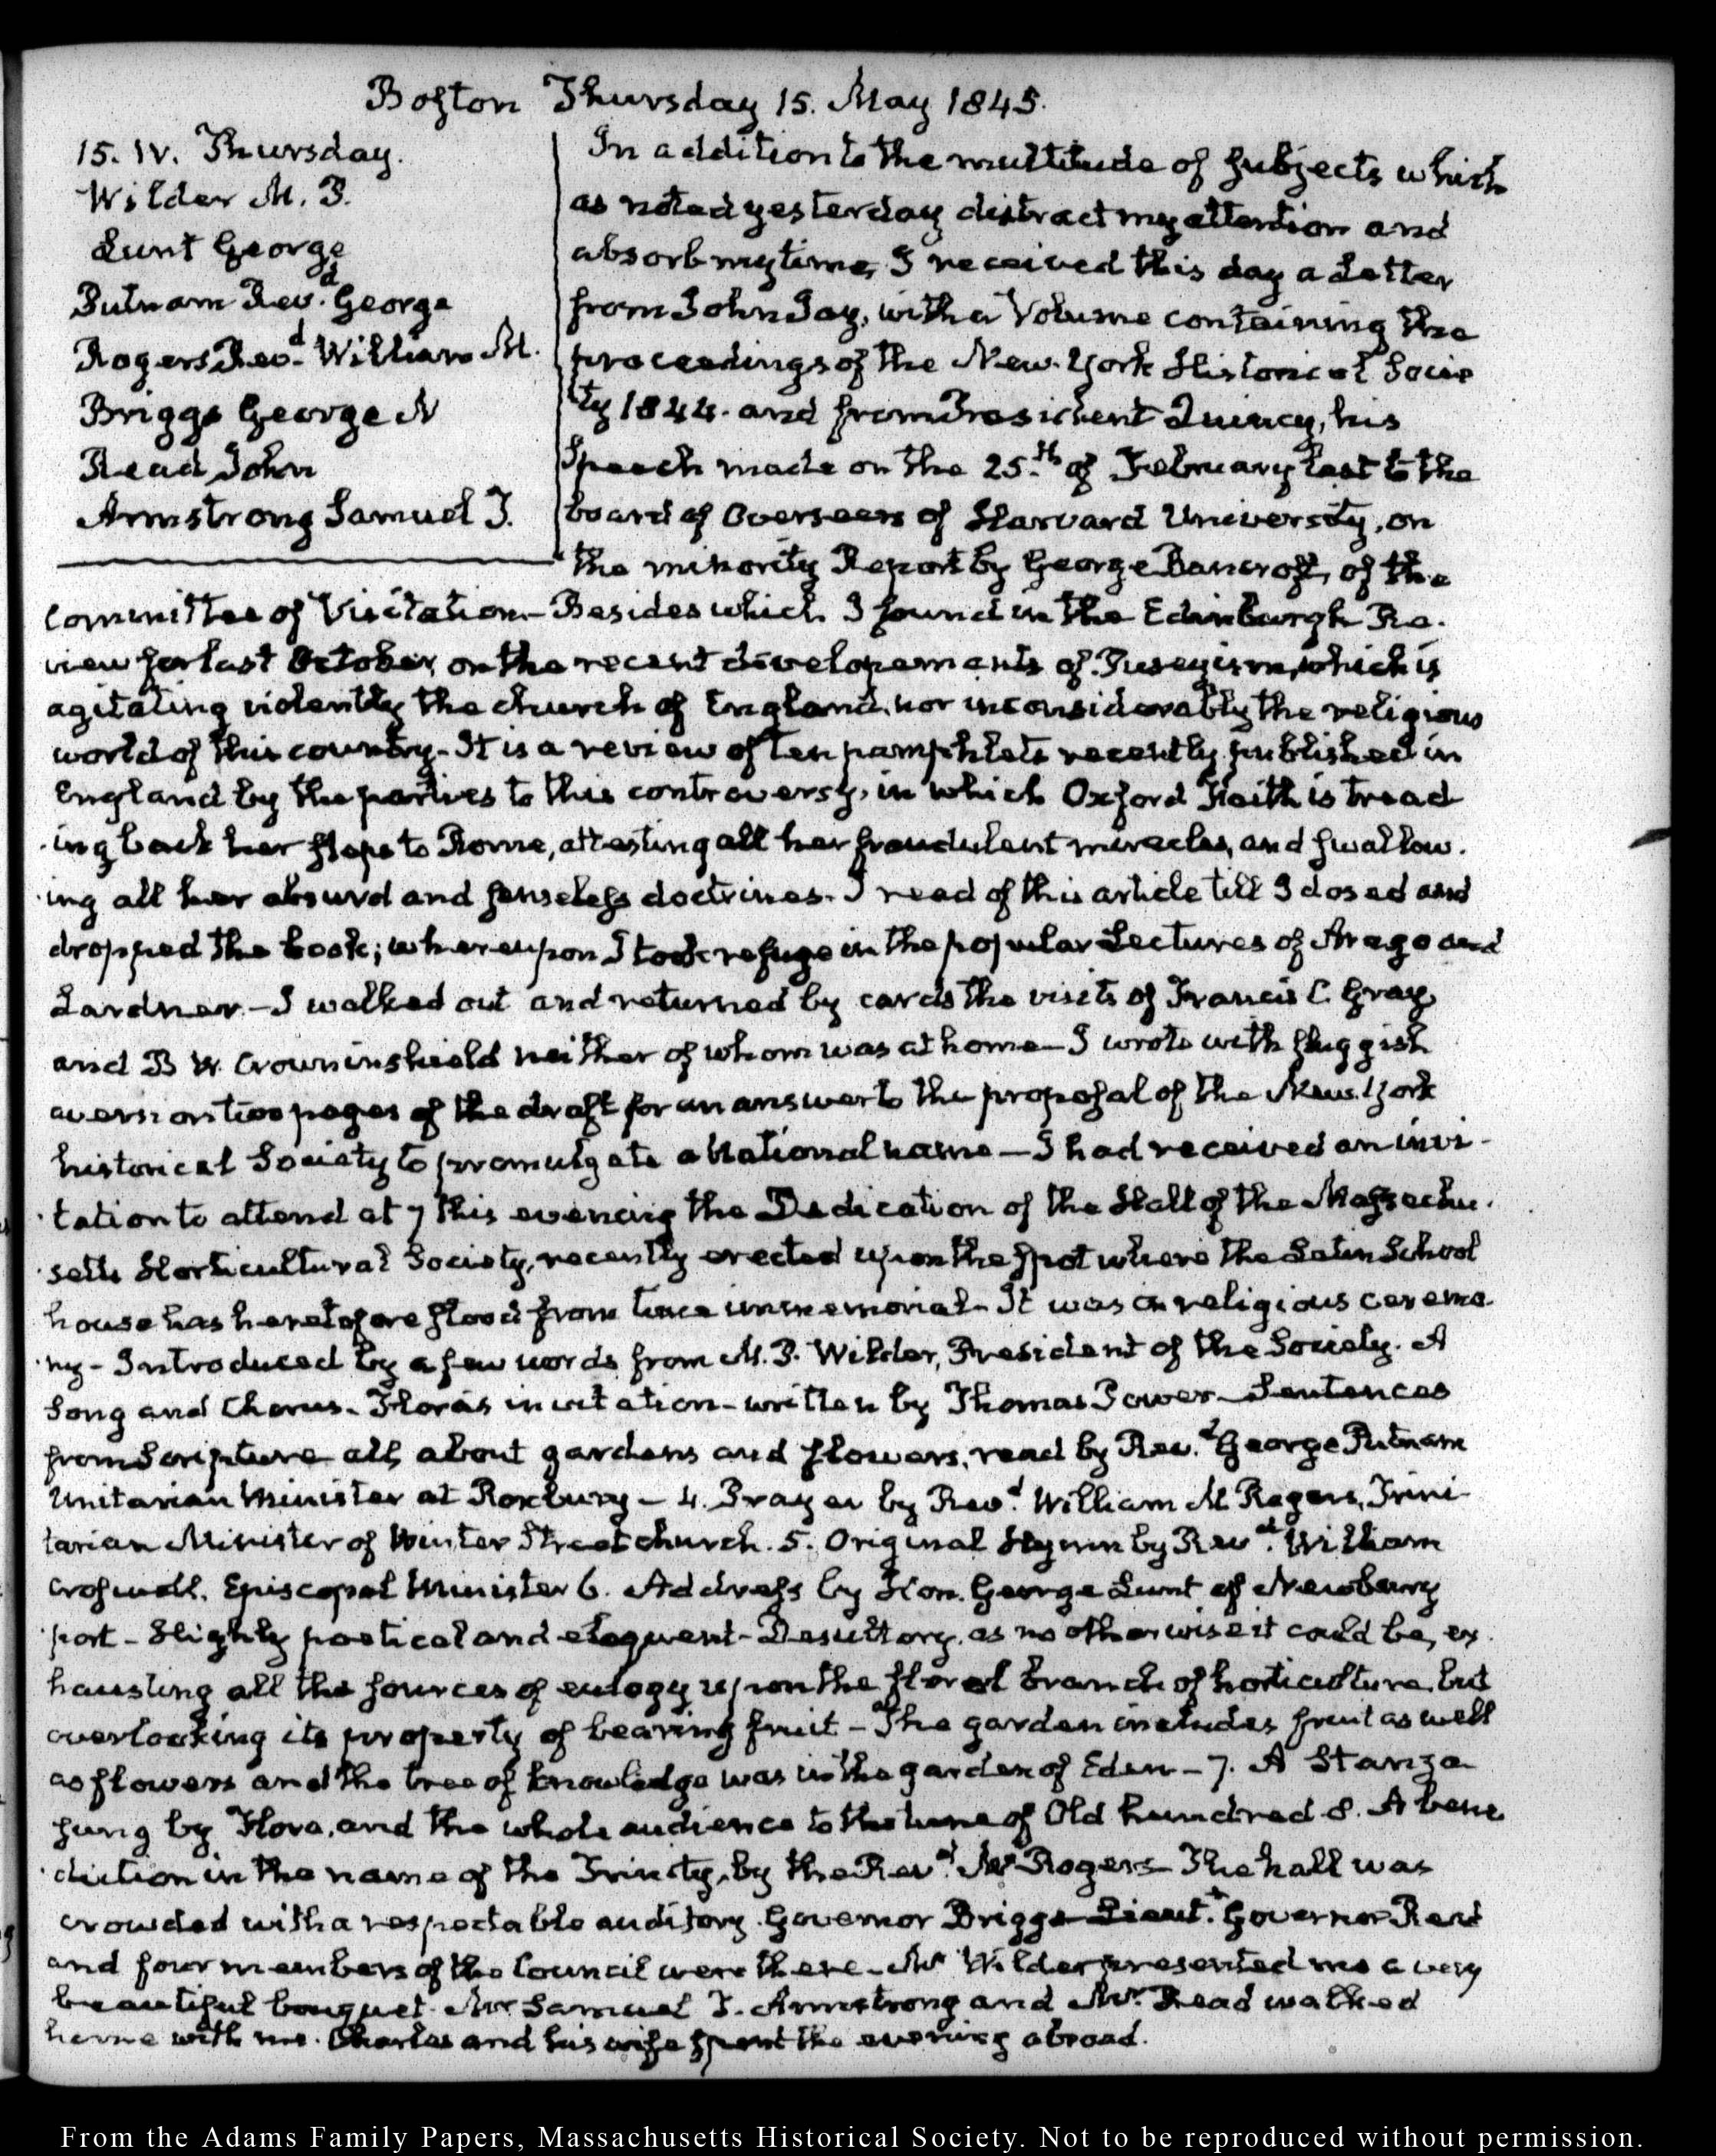 Boston Thursday 15. May 1845.
15. IV. Thursday.
Wilder M. P.
Lunt George
Putnam Revd. George
Rogers Revd. William M.
Briggs George N
Read John
Armstrong Samuel T.
In addition to the multitude of subjects which
as noted yesterday distract my attention and
absorb my time, I received this day a Letter
from John Jay, with a Volume containing the
proceedings of the New-York Historical Socie
ty 1844. and from President Quincy, his
Speech made on the 25.th of February last to the
board of Overseers of Harvard University, on
the minority Report by George Bancroft, of the
Committee of Visitation- Besides which I found in the Edinburgh Re-
view for last October, on the recent developements of Puseyism, which is
agitating violently the church of England, nor inconsiderably the religious
world of this country- It is a review of ten pamphlets recently published in
England by the parties to this controversy, in which Oxford Faith is tread
ing back her steps to Rome, attesting all her fraudulent miracles, and swallow-
ing all her absurd and senseless doctrines- I read of this article till I dosed and
dropped the book; whereupon I took refuge in the popular Lectures of Arago and
Lardner-I walked out and returned by cards the visits of Francis C. Gray
and B W. Crowninshield neither of whom was at home-I wrote with sluggish
aversion two pages of the draft for an answer to the proposal of the New-York
historical Society to promulgate a National name-I had received an invi-
tation to attend at 7 this evening the Dedication of the Hall of the Massachu-
setts Horticultural Society, recently erected upon the spot where the Latin School
house has heretofore stood from time immemorial- It was a religious ceremo-
ny- Introduced by a few words from M. P. Wilder, President of the Society. A
Song and Chorus- Flora's invitation-written by Thomas Power-Sentences
from Scripture all about gardens and flowers, read by Revd. George Putnam
Unitarian Minister at Roxbury- 4. Prayer by Revd. William M Rogers, Trini-
tarian Minister of Winter Street church. 5. Original Hymn by Revd. William
Croswell. Episcopal Minister 6. Address by Hon. George Lunt of Newbury
port- Slightly poetical and eloquent-Desultory, as no otherwise it could be, ex-
hausting all the sources of eulogy upon the floral branch of horticulture, but
overlooking its property of bearing fruit- The garden includes fruit as well
as flowers and the tree of knowledge was in the garden of Eden- 7. A Stanza
sung by Flora, and the whole audience to the tune of Old hundred 8. A bene
diction in the name of the Trinity, by the Revd. Mr Rogers- The hall was
crowded with a respectable auditory. Governor Briggs-Lieutt. Governor Read
and four members of the Council were there- Mr Wilder presented me a very
beautiful bouquet. Mr Samuel T. Armstrong and Mr. Read walked
home with me. Charles and his wife spent the evening abroad.
From the Adams Family Papers, Massachusetts Historical Society. Not to be reproduced without permission.